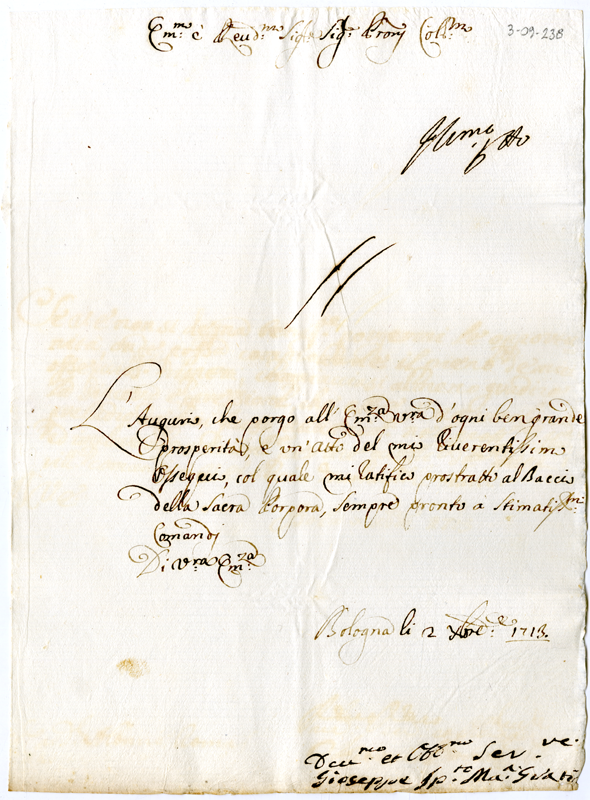 Em.mo è Reud.mo Sig.r Sig.r Pron Coll.mo
3-09-238
L'Augurio, che porgo all' Em.za vr̃a d'ogni ben grande
prosperità, è vn'atto del mio riuerentissimo
Ossequio, col quale mi ratifico prostratto al Baccio
della Sacra Porpora, sempre pronto à Stimatiss.mi
Comandi
Di vr̃a Em.za
Bologna li 2 Xbre 1713.
Deu.mo et Obb.mo Ser.ve
Gioseppe